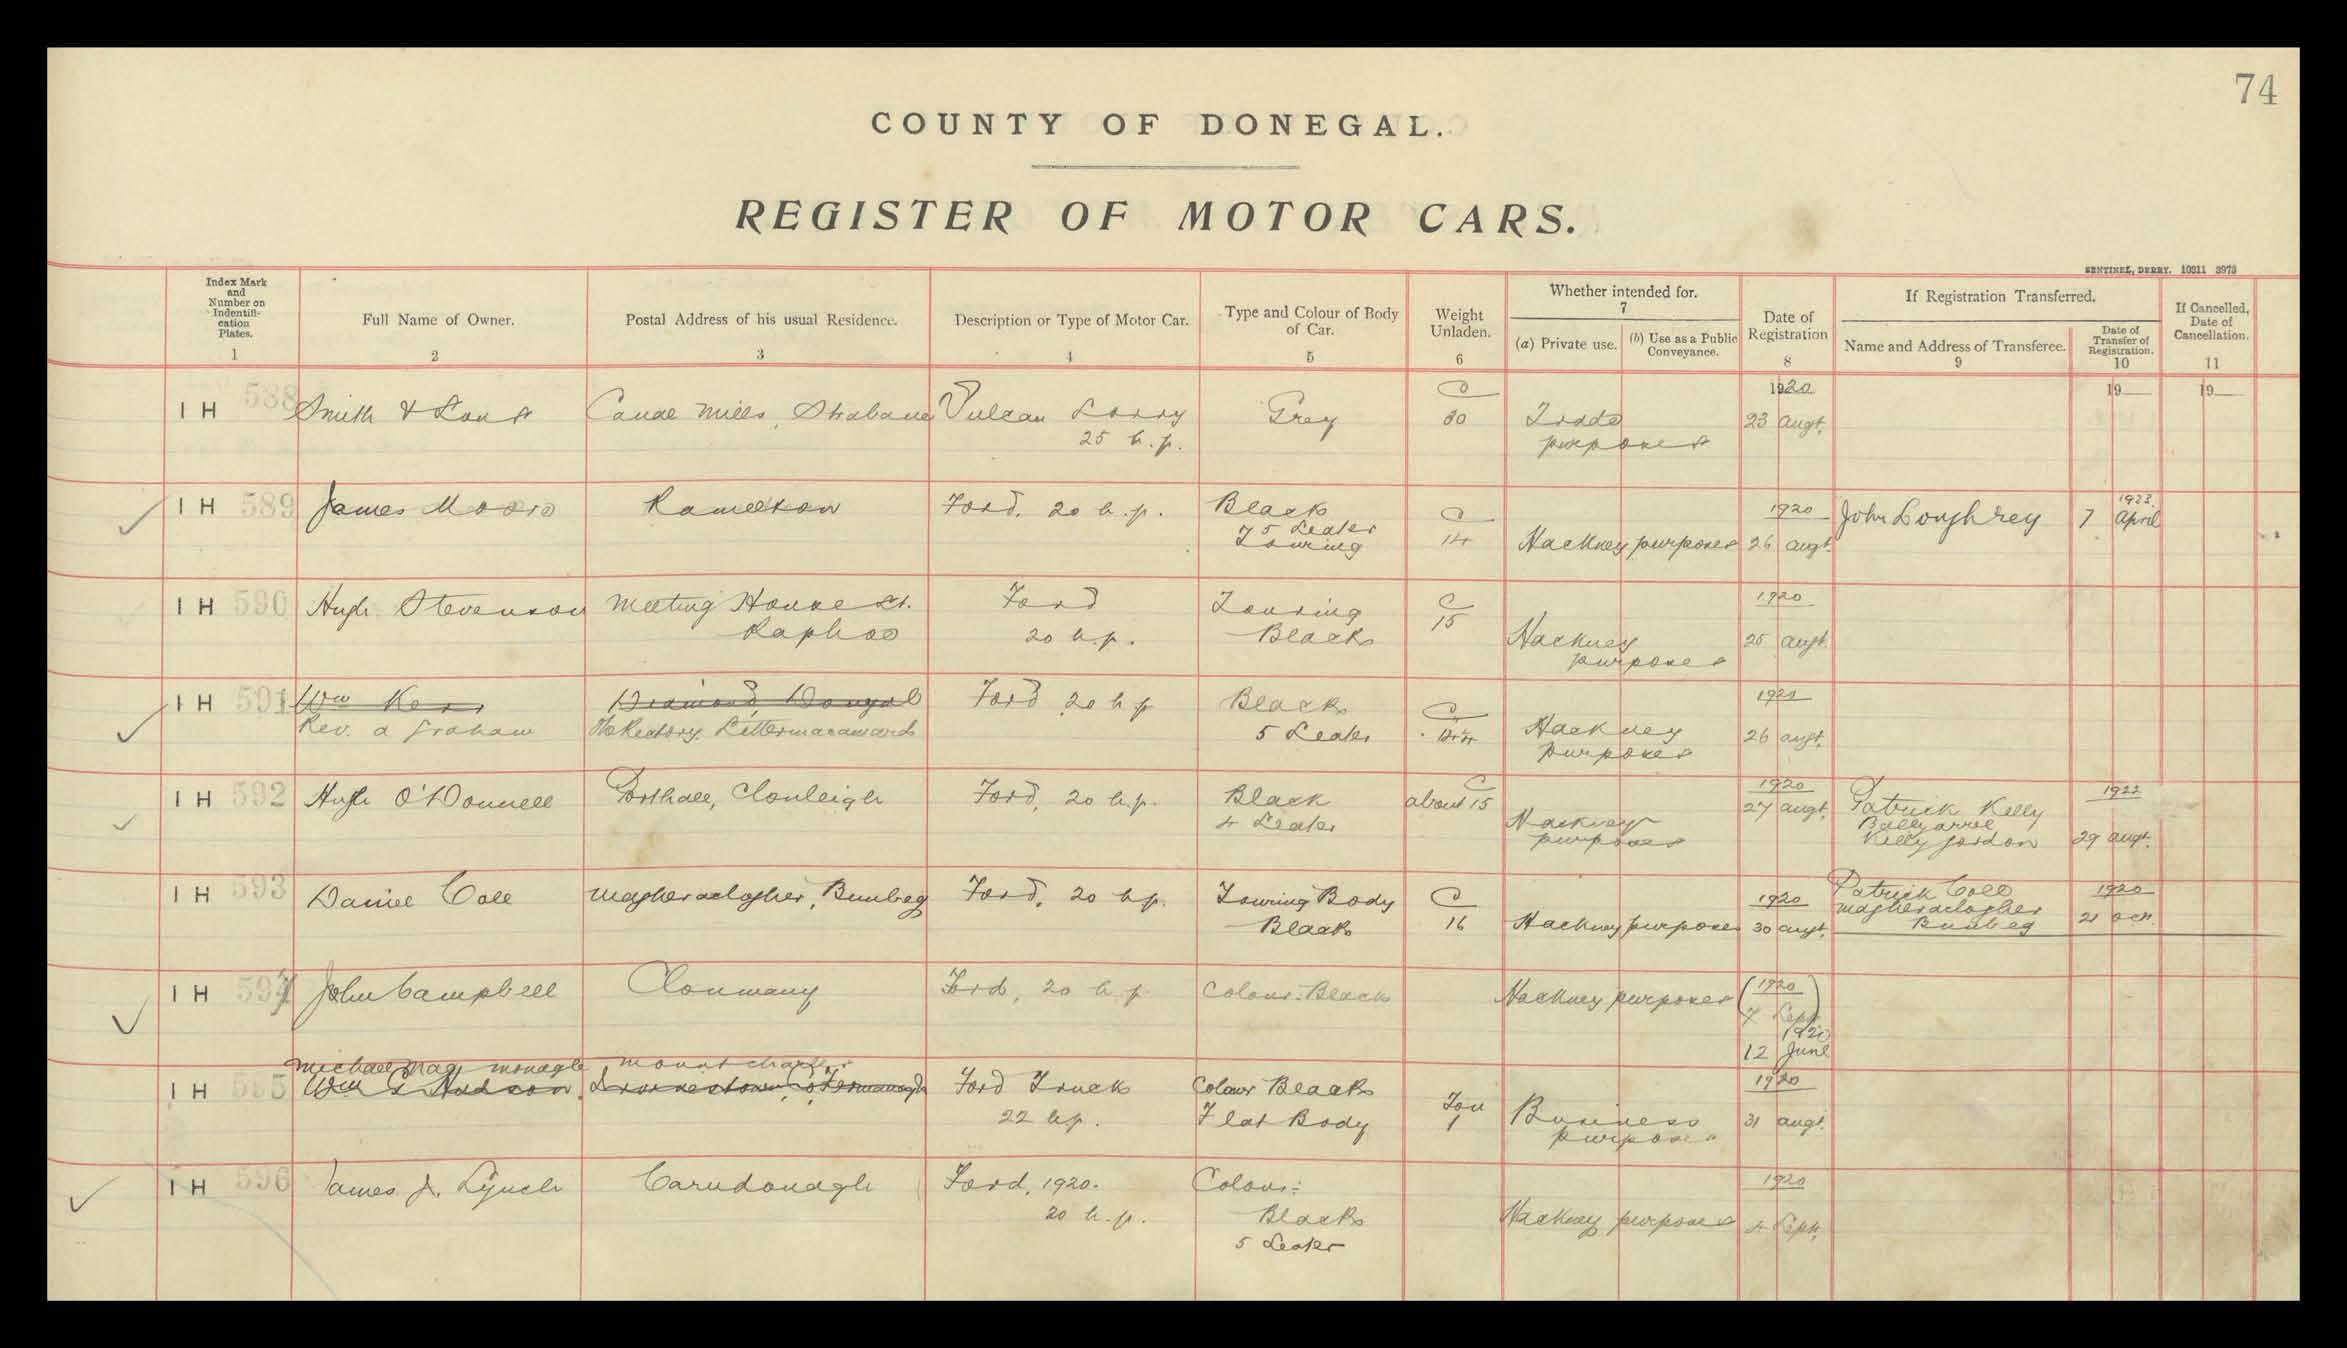 74
COUNTY OF DONEGAL.
REGISTER OF MOTOR CARS.
SENTINEL, DERRY. 10311 3973
Index Mark and Number on Indentifi-cation Plates.
Full Name of Owner.
Postal Address of his usual Residence.
Description or Type of Motor Car.
Type and Colour of Body of Car.
Weight Unladen.
Whether intended for.
7
(a) Private use.
(b) Use as a Public Conveyance.
Date of Registration
If Registration Transferred.
Name and Address of Transferee.
Date of Transfer of Registration.
If Cancelled, Date of Cancellation.
1 2 3 4 5 6 8 9 10 11
1920 19 19
I H 588 Smith & Sons Canal Mills, Strabane Vulcan Lorry Grey C 30 Trade 23 Augt.
25 h.p. purposes
I H 589 James Moore Ramelton Ford, 20 h.p. Black C 14 Hackney purposes 1920 26 Augt. John Loughrey 7 April
5 Seater
Touring
I H 590 Hugh Stevenson Meeting House St. Ford Touring C 15 Hackney 1920 25 Augt.
Raphoe 20 h.p. Black purposes
I H 591 Wm Kerr Diamond, Donegal Ford 20 h.p. Black C Hackney 26 Augt.
Rev. A Graham The Rectory, Lettermacaward 5 Seater purposes
I H 592 Hugh O'Donnell Porthall, Clonleigh Ford, 20 h.p. Black C about 15 Hackney 1920 27 Augt. Patrick Kelly 1922
4 Seater purposes Killygordon 29 Augt.
I H 593 Daniel Coll Magheraclogher, Bunbeg Ford, 20 h.p. Touring Body C 16 Hackney purposes 1920 30 Augt. Patrick Coll 1920
Black Magheraclogher 21 Oct.
Bunbeg
I H 594 John Campbell Clonmany Ford, 20 h.p. Colour: Black Hackney purposes (1920
7 Sept)
1920
12 June
Michael Monagle Mountcharles
I H 595 Wm Hudson, Ford Truck Colour Black Ton 1 Business 1920 31 Augt.
22 h.p. Flat Body purposes
I H 596 James J. Lynch Carndonagh Ford, 1920. Colour: Hackney purposes 1920 4 Sept.
20 h.p. Black
5 Seater